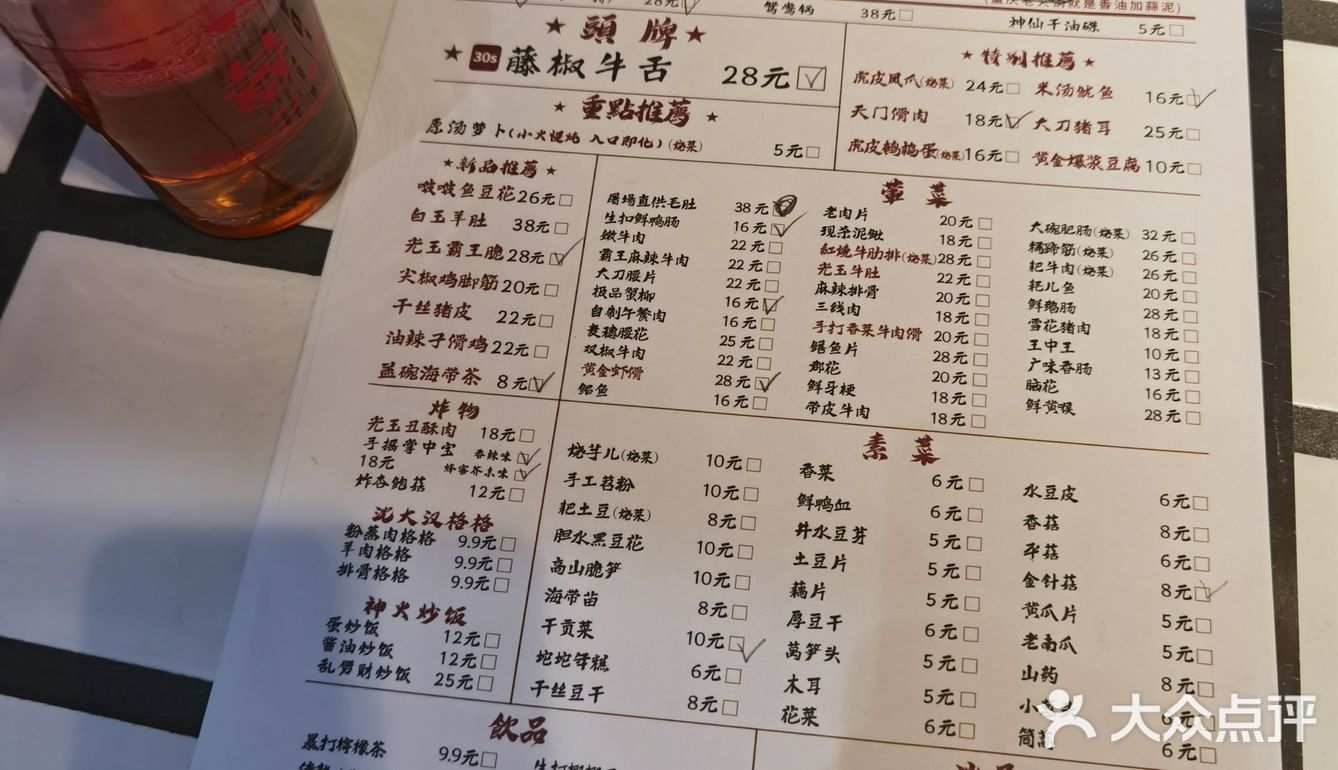 28元
鸳鸯锅 38元
(重庆老火锅就是香油加蒜泥)
神仙干油碟 5元
★ 頭牌 ★
★ 30s 藤椒牛舌 28元
★ 重點推薦 ★
原汤萝卜(小火慢炖 入口即化)(烧菜) 5元
★ 特别推薦 ★
虎皮凤爪(烧菜) 24元
米汤鱿鱼 16元
天门滑肉 18元
大刀猪耳 25元
虎皮鹌鹑蛋(烧菜) 16元
黄金爆浆豆腐 10元
★ 新品推薦 ★
啵啵鱼豆花 26元
白玉羊肚 38元
光玉霸王脆 28元
尖椒鸡脚筋 20元
千丝猪皮 22元
油辣子滑鸡 22元
盖碗海带茶 8元
炸物
光玉丑酥肉 18元
手摇掌中宝 香辣味
18元 蜂蜜芥末味
炸杏鲍菇 12元
沱大汉格格
粉蒸肉格格 9.9元
羊肉格格 9.9元
排骨格格 9.9元
神火炒饭
蛋炒饭 12元
酱油炒饭 12元
乱劈财炒饭 25元
葷菜
屠场直供毛肚 38元
生扣鲜鸭肠 16元
嫩牛肉 22元
霸王麻辣牛肉 22元
大刀腰片 22元
极品蟹柳 16元
自制午餐肉 16元
麦穗腰花 25元
双椒牛肉 22元
黄金虾滑 28元
鲍鱼 16元
老肉片 20元
现杀泥鳅 18元
紅燒牛肋排(烧菜) 28元
光玉牛肚 22元
麻辣排骨 20元
三线肉 18元
手打香菜牛肉滑 20元
鳝鱼片 28元
郡花 20元
鲜牙梗 18元
带皮牛肉 18元
大碗肥肠(烧菜) 32元
糯蹄筋(烧菜) 26元
耙牛肉(烧菜) 26元
耙儿鱼 20元
鲜鹅肠 28元
雪花猪肉 18元
王中王 10元
广味香肠 13元
脑花 16元
鲜黄喉 28元
素菜
烧芋儿(烧菜) 10元
手工苕粉 10元
耙土豆(烧菜) 8元
胆水黑豆花 10元
高山脆笋 10元
海带苗 8元
干贡菜 10元
坨坨年糕 6元
千丝豆干 8元
香菜 6元
鲜鸭血 6元
井水豆芽 5元
土豆片 5元
藕片 5元
厚豆干 6元
莴笋头 5元
木耳 5元
花菜 6元
水豆皮 6元
香菇 8元
平菇 6元
金针菇 8元
黄瓜片 5元
老南瓜 5元
山药 8元
小 6元
筒蒿 6元
飲品
暴打檸檬茶 9.9元
大众点评